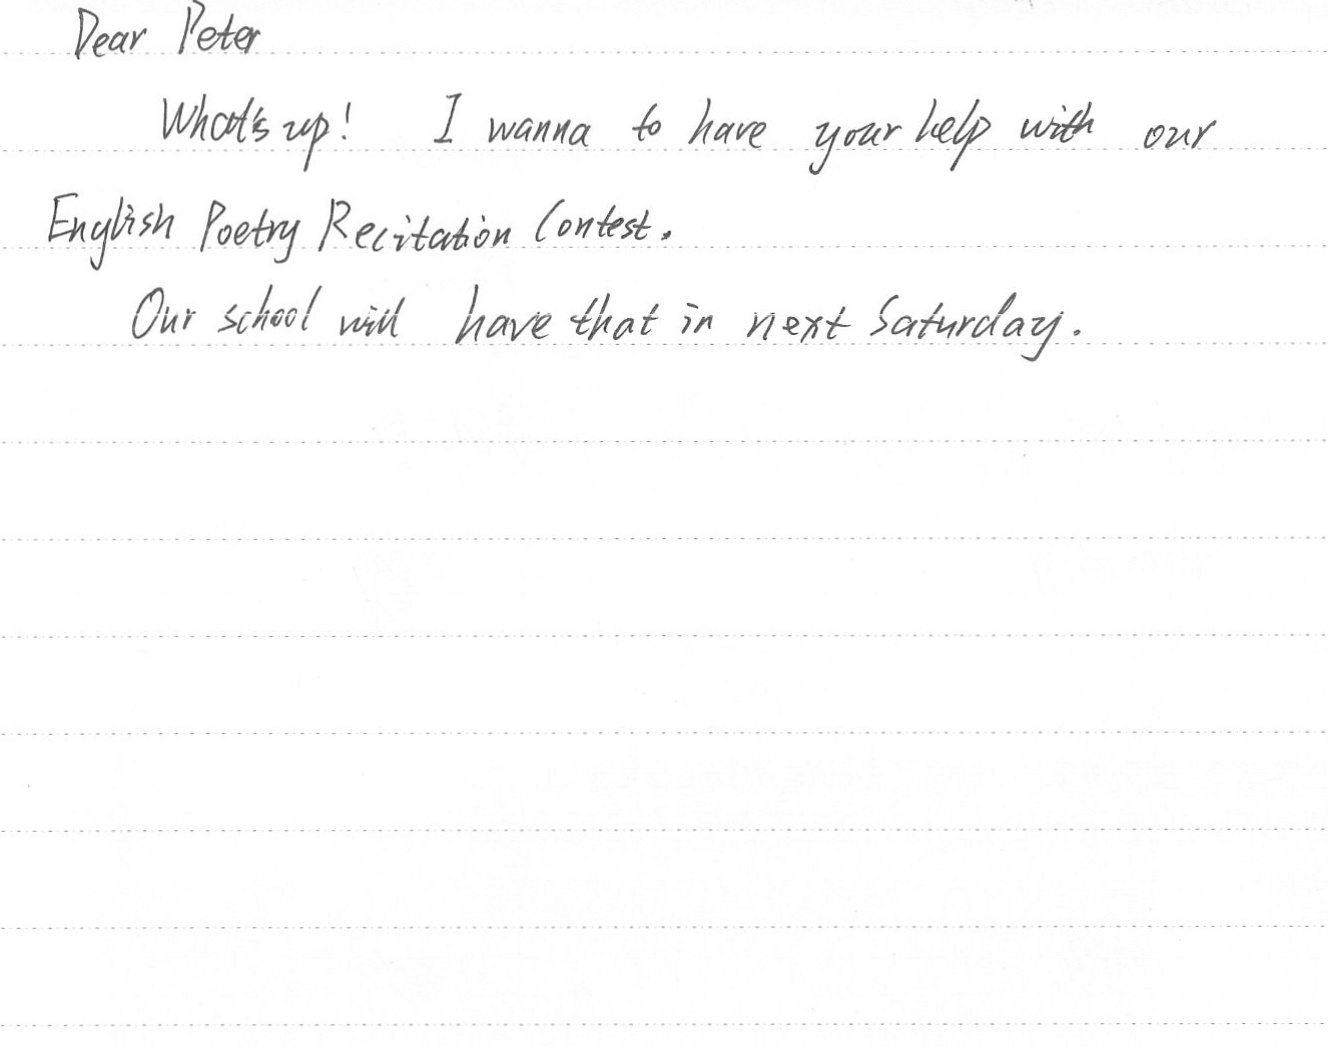 Dear Peter
What's up! I wanna to have your help with our
English Poetry Recitation Contest.
Our school will have that in next Saturday.